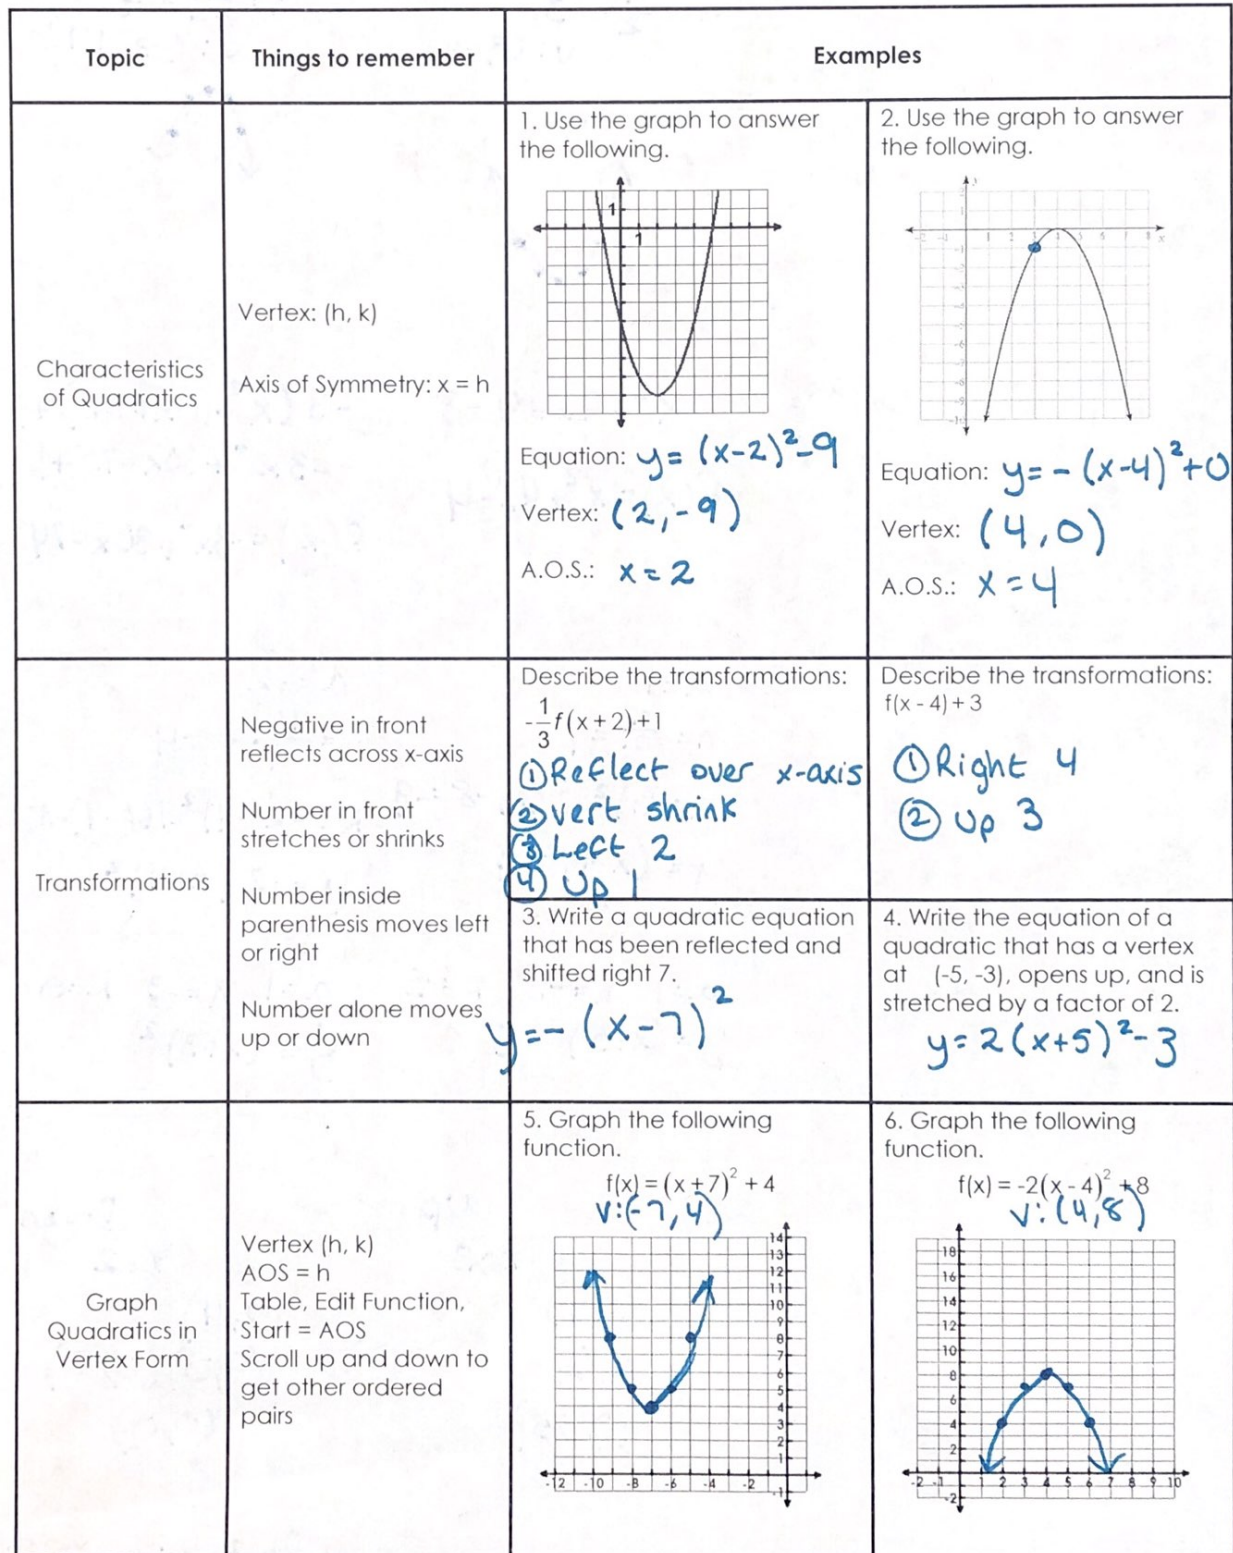 Topic
Things to remember
Examples
Characteristics
of Quadratics
Vertex: (h, k)
Axis of Symmetry: x = h
1. Use the graph to answer
the following.
1
1
Equation: y = (x-2)²-9
Vertex: (2,-9)
A.O.S.: x = 2
2. Use the graph to answer
the following.
Equation: y = - (x-4)²+0
Vertex: (4,0)
A.O.S.: x = 4
Transformations
Negative in front
reflects across x-axis
Number in front
stretches or shrinks
Number inside
parenthesis moves left
or right
Number alone moves
up or down
Describe the transformations:
-1/3 f(x + 2)+1
① Reflect over x-axis
② vert shrink
③ Left 2
④ Up 1
Describe the transformations:
f(x - 4) + 3
① Right 4
② Up 3
3. Write a quadratic equation
that has been reflected and
shifted right 7.
y = - (x-7)²
4. Write the equation of a
quadratic that has a vertex
at (-5, -3), opens up, and is
stretched by a factor of 2.
y = 2(x+5)²-3
Graph
Quadratics in
Vertex Form
Vertex (h, k)
AOS = h
Table, Edit Function,
Start = AOS
Scroll up and down to
get other ordered
pairs
5. Graph the following
function.
f(x) = (x + 7)² + 4
V: (-7, 4)
14
13
12
11
10
9
8
7
6
5
4
3
2
1
-12 -10 -8 -6 -4 -2
-1
6. Graph the following
function.
f(x) = -2(x - 4)² + 8
V: (4,8)
18
16
14
12
10
8
6
4
2
-2 -1 1 2 3 4 5 6 7 8 9 10
-2